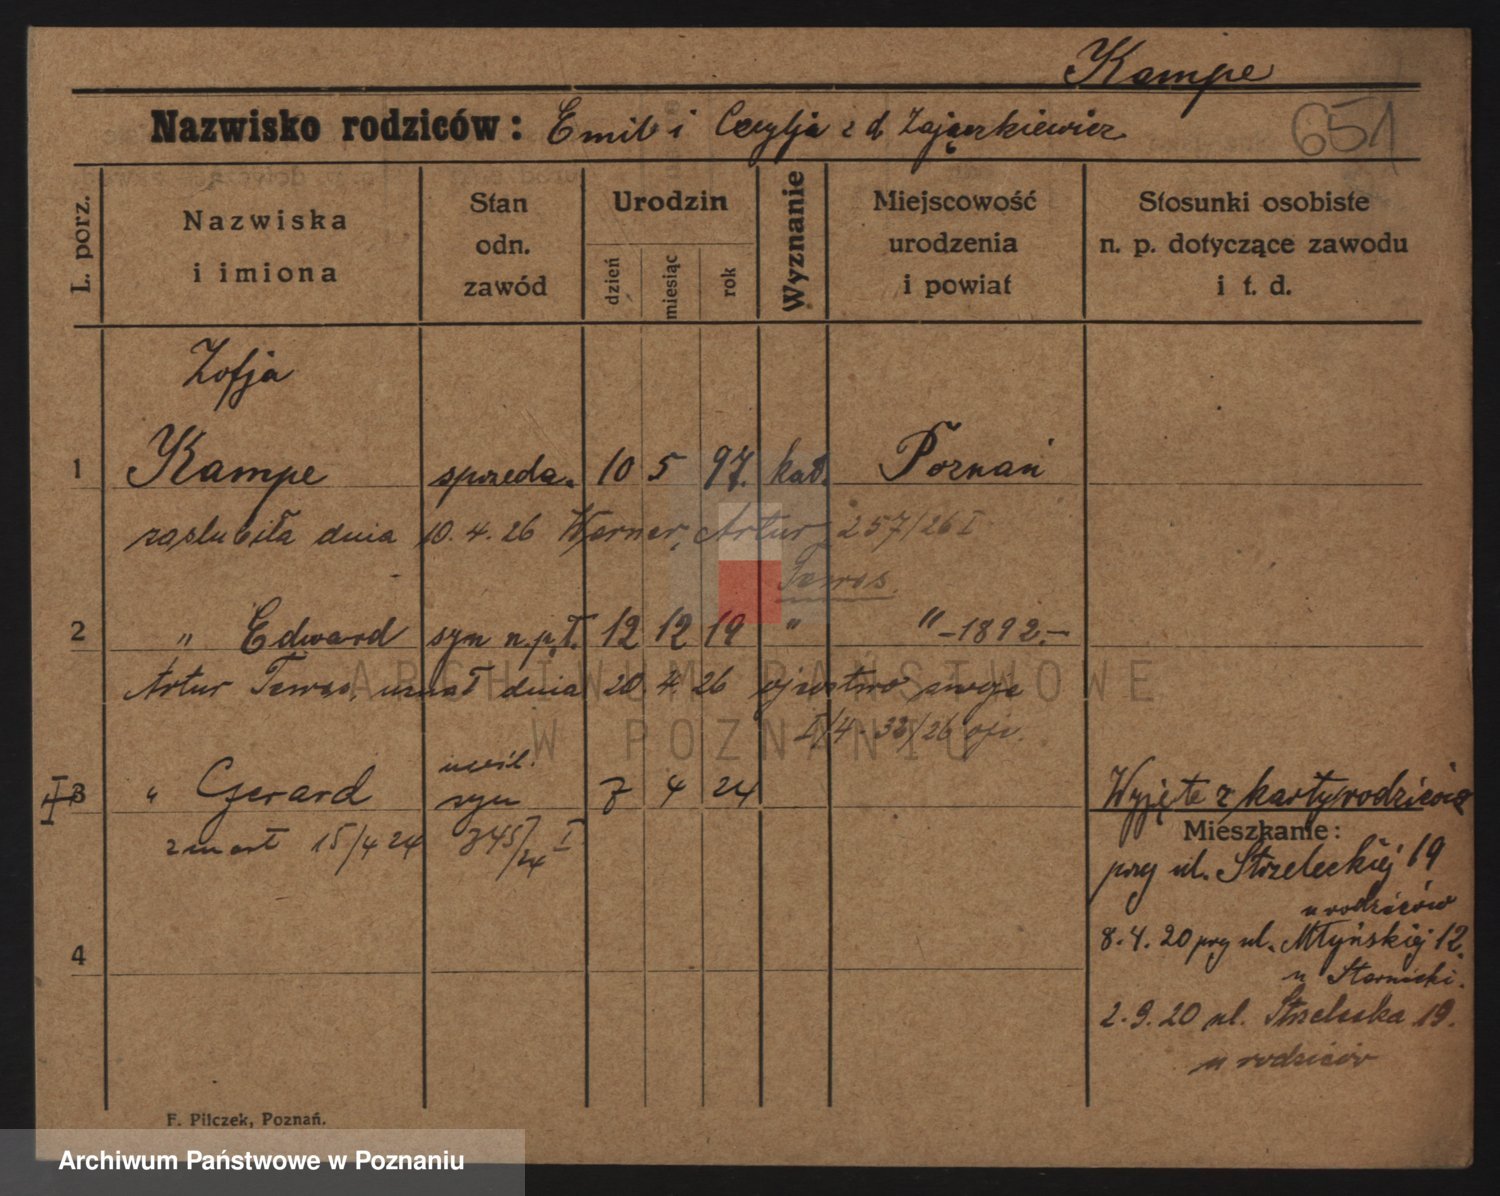 Kampe
Nazwisko rodziców: Emil i Cecylja z d Zajączkiewicz
651
L. porz.
Nazwiska i imiona
Stan odn. zawód
Urodzin
dzień
miesiąc
rok
Wyznanie
Miejscowość urodzenia i powiat
Stosunki osobiste n. p. dotyczące zawodu i t. d.
Zofja
1 Kampe sprzeda. 10 5 97. kat. Poznań
zaślubiła dnia 10. 4. 26 Werner, Artur 257/26 I
Tewes
2 " Edward syn n.p.ł. 12 12 19 " " -1892.-
Artur Tewes, uznał dnia 20. 4. 26 ojcostwo swoje
I/4-32/26
nieśl.
3 " Gerard syn 7 4 24
Wyjęte z karty rodziców
zmarł 15/4 24 845/24 I
Mieszkanie:
przy ul. Strzeleckiej 19
u rodziców
4
8. 4. 20 przy ul. Młyńskiej 12.
u
2. 9. 20 ul. Strzelecka 19.
u rodziców
F. Pilczek, Poznań.
ARCHIWUM PAŃSTWOWE
W POZNANIU
Archiwum Państwowe w Poznaniu